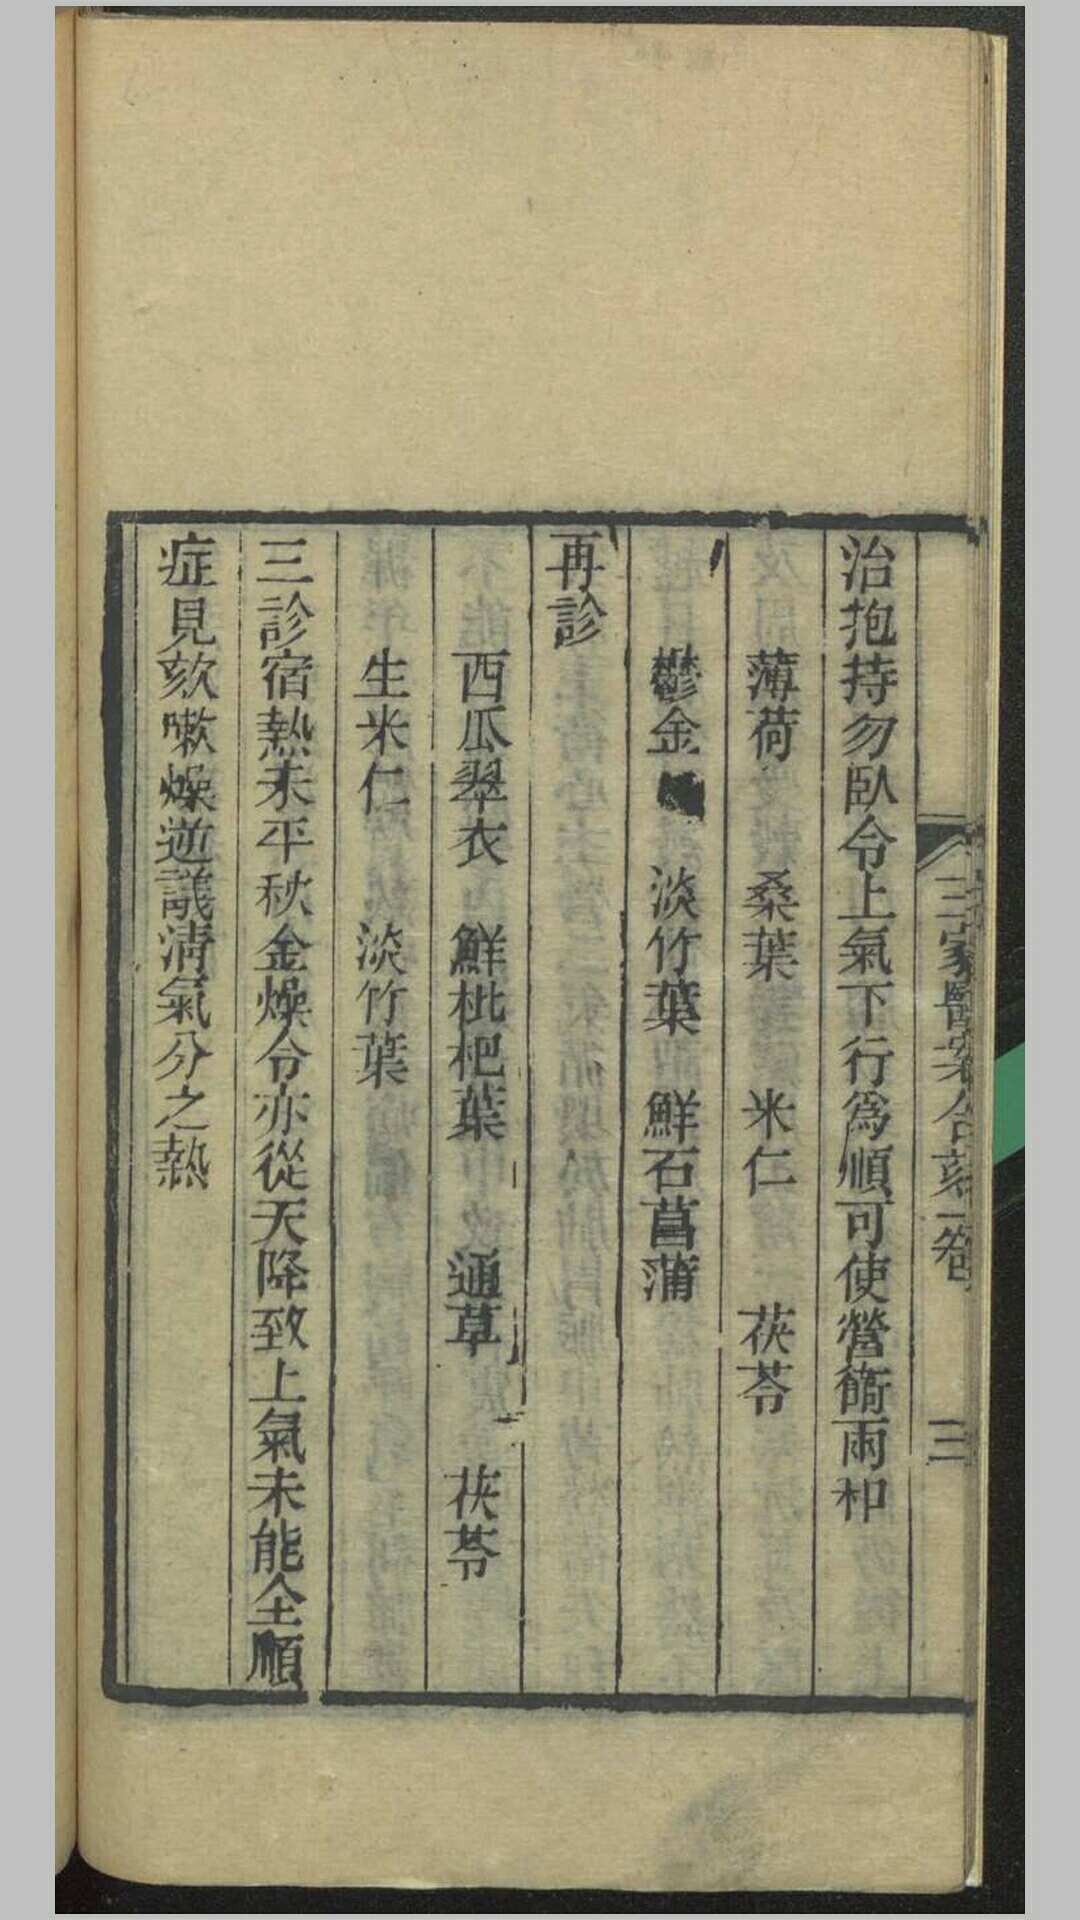 三家醫案合刻一卷
三
治抱持勿臥令上氣下行爲順可使營衞兩和
薄荷 桑葉 米仁 茯苓
鬱金 淡竹葉 鮮石菖蒲
再診
西瓜翠衣 鮮枇杷葉 通草 茯苓
生米仁 淡竹葉
三診宿熱未平秋金燥令亦從天降致上氣未能全順
症見欬嗽燥逆議清氣分之熱